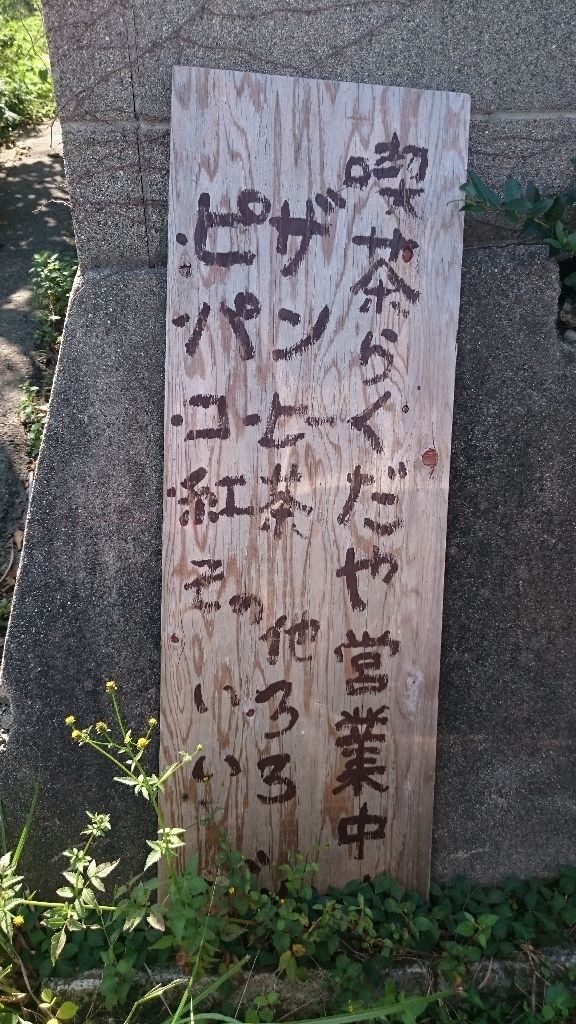 喫茶らくだや営業中
・ピザ
・パン
・コーヒー
・紅茶
その他
いろいろ